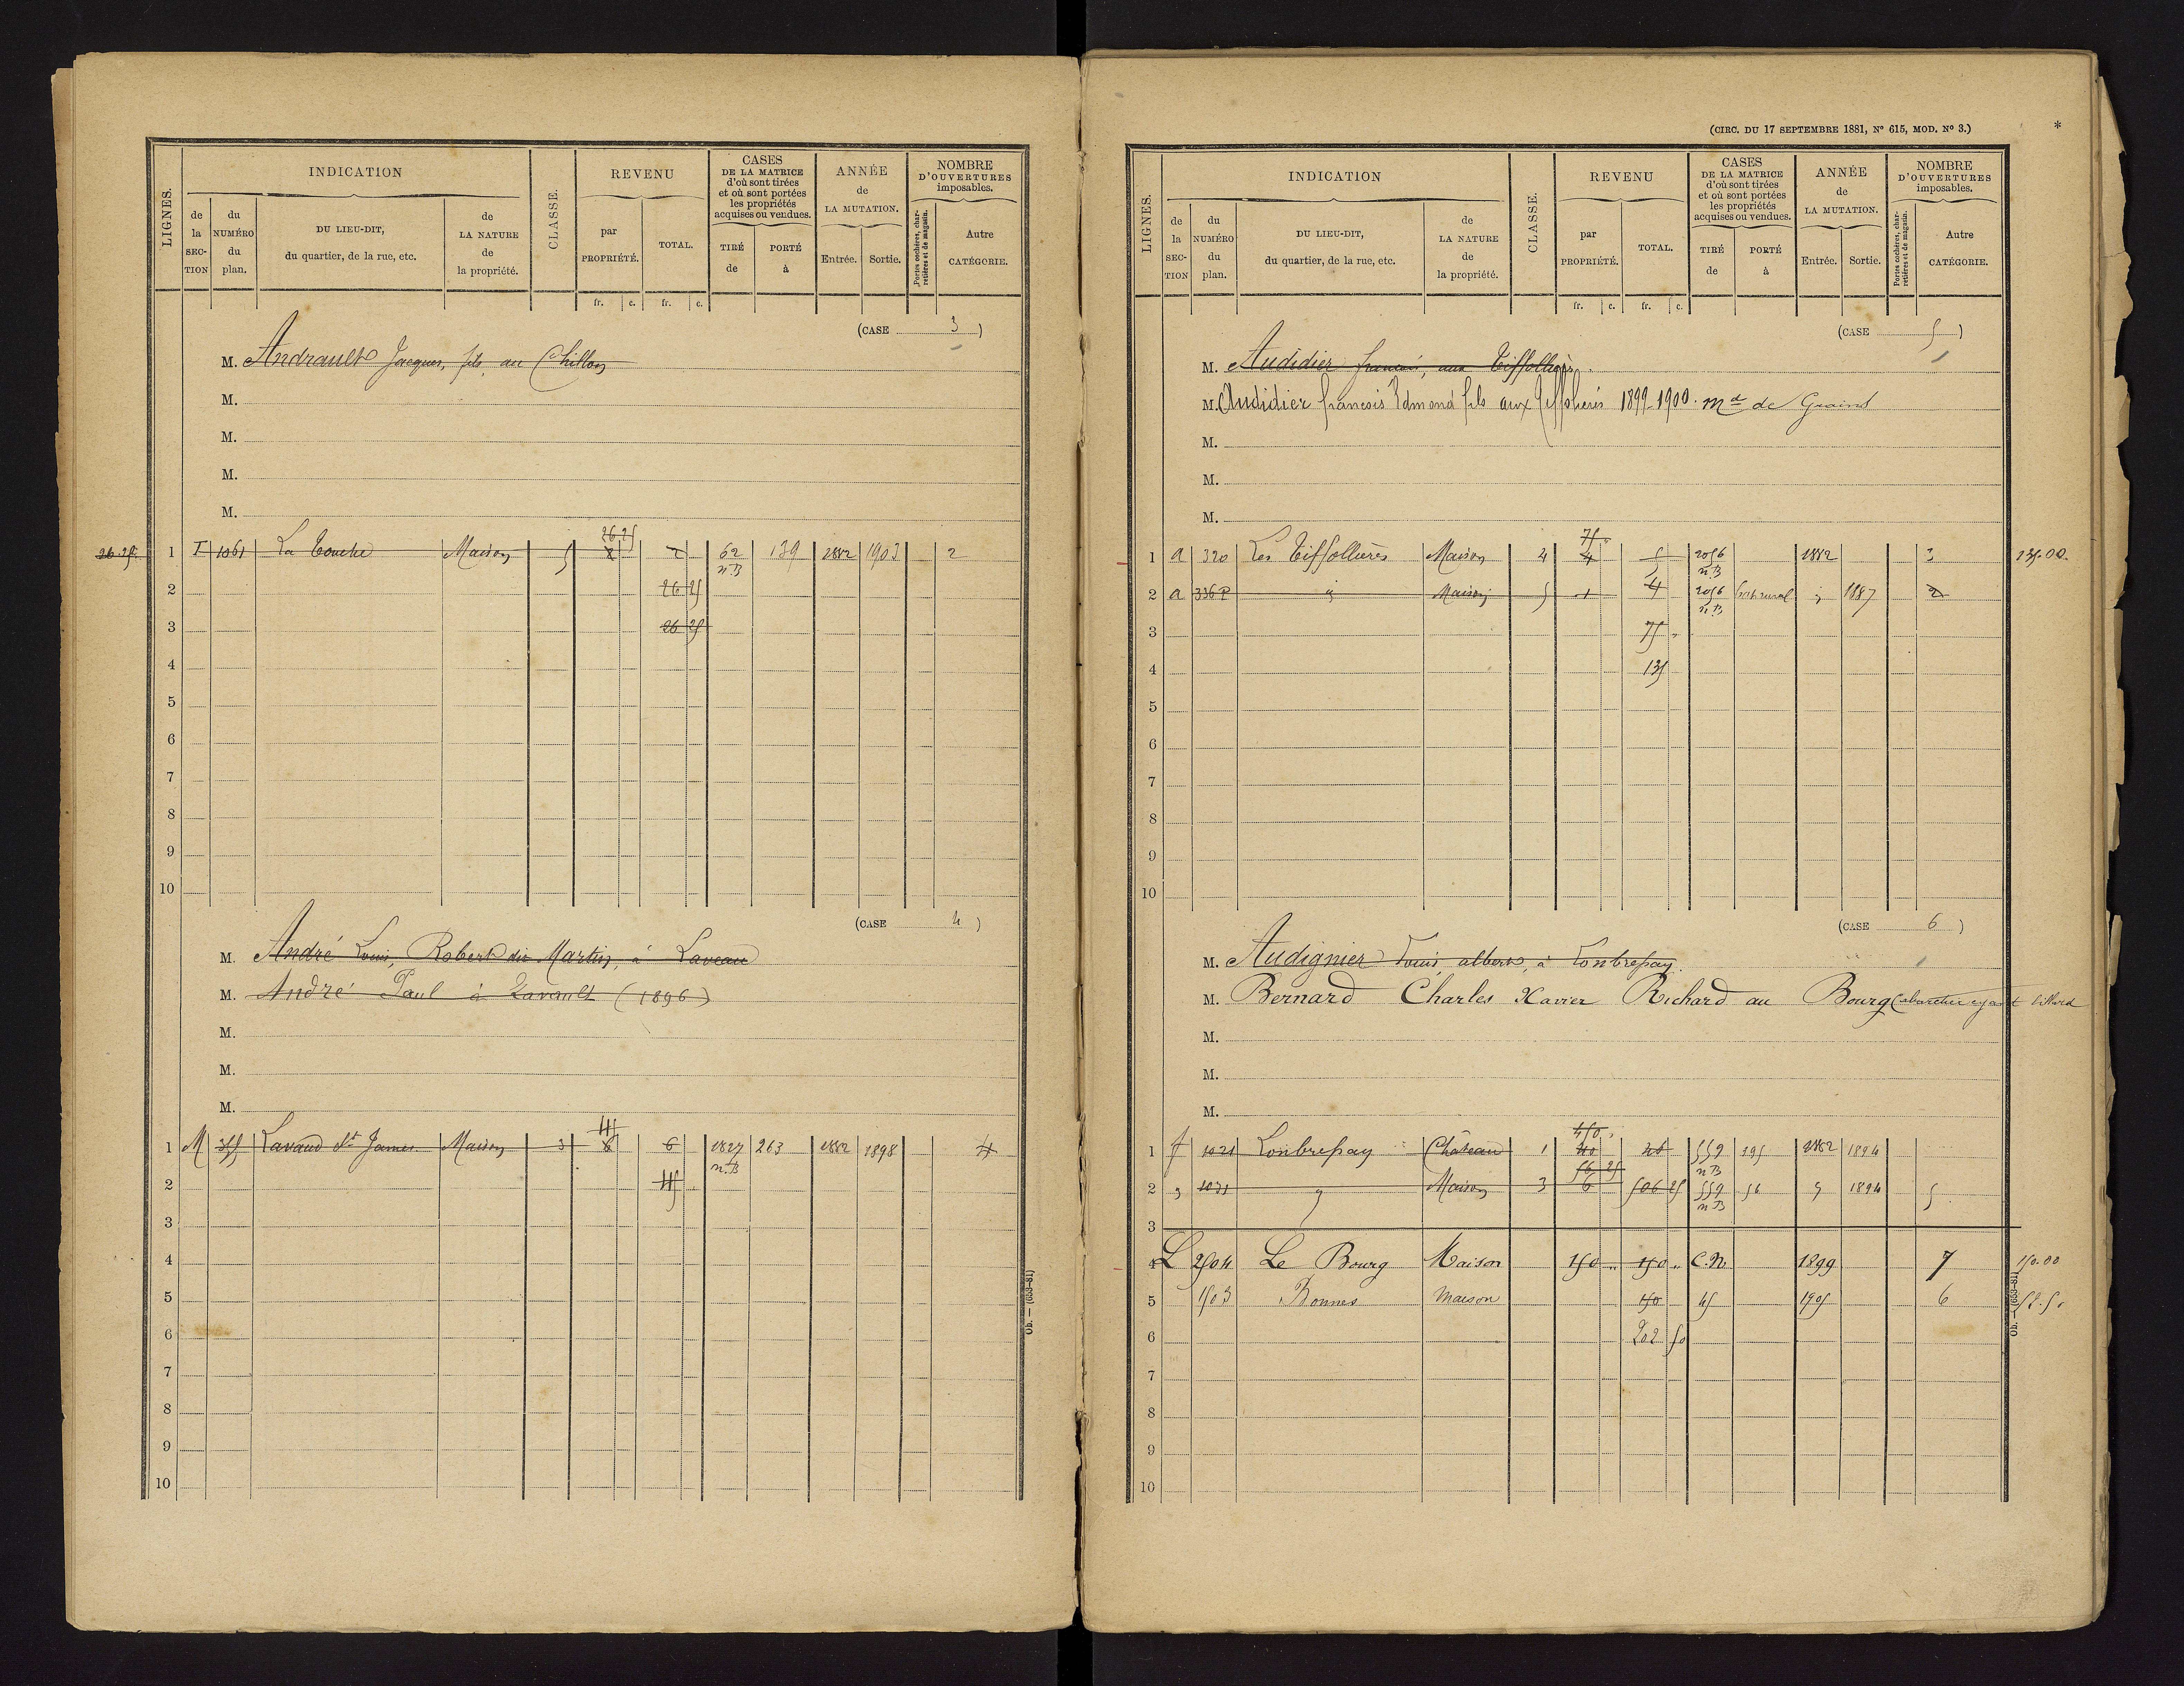 LIGNES.
INDICATION
de la SECTION
du NUMÉRO du plan.
DU LIEU-DIT, du quartier, de la rue, etc.
de LA NATURE de la propriété.
CLASSE.
REVENU
par PROPRIÉTÉ.
TOTAL.
fr. c. fr. c.
CASES DE LA MATRICE d'où sont tirées et où sont portées les propriétés acquises ou vendues.
TIRÉ de
PORTÉ à
ANNÉE de LA MUTATION.
Entrée. Sortie.
NOMBRE D'OUVERTURES imposables.
Portes cochères, charretières et de magasin.
Autre CATÉGORIE.
(CASE 3)
M. Andrault Jacques, fils, au Chillou
M.
M.
M.
M.
26 25
26.25 1 I 1061 La Touche Maison 5 2 62 139 1882 1903 2
n.B
2 26 25
3 26 25
4
5
6
7
8
9
10
(CASE 4)
M. André Louis, Robert dit Martin, à Laveau
M. André Paul à Lavault (1896)
M.
M.
M.
45
1 M 355 Lavaud St James Maison 3 6 6 1827 263 1882 1898 4
n.B
2 45
3
4
5
6
7
8
9
10
Ob. — (653-81)
(CIRC. DU 17 SEPTEMBRE 1881, Nº 615, MOD. Nº 3.)
*
LIGNES.
INDICATION
de la SECTION
du NUMÉRO du plan.
DU LIEU-DIT, du quartier, de la rue, etc.
de LA NATURE de la propriété.
CLASSE.
REVENU
par PROPRIÉTÉ.
TOTAL.
fr. c. fr. c.
CASES DE LA MATRICE d'où sont tirées et où sont portées les propriétés acquises ou vendues.
TIRÉ de
PORTÉ à
ANNÉE de LA MUTATION.
Entrée. Sortie.
NOMBRE D'OUVERTURES imposables.
Portes cochères, charretières et de magasin.
Autre CATÉGORIE.
(CASE 5)
M. Audidier francois, aux Tiffollières
M. Audidier francois Edmond fils aux Tiffolieres 1899-1900. Md de Grains
M.
M.
M.
75
1 a 320 Les Tiffollières Maison 4 4 5 2056 1882 3 135.00
n.B
2 a 336P " Maison 5 1 4 2056 bat rural " 1887 2
n.B
3 75 "
4 135
5
6
7
8
9
10
(CASE 6)
M. Audignier Louis, albert, à Lonbrepay
M. Bernard Charles Xavier Richard au Bourg Cabaretier ayant billard
M.
M.
M.
450
1 f 1021 Lonbrepay Château 1 40 559 195 1882 1894
56 25 n.B
2 " 1031 " Maison 3 6 506 25 559 56 " 1894 5
n.B
3
4 L 2504 Le Bourg Maison 150 " 150 " C.N 1899 7 150.00
5 1503 Bonnes maison 150 45 1905 6 52.50
6 202 50
7
8
9
10
Ob. — (653-81)